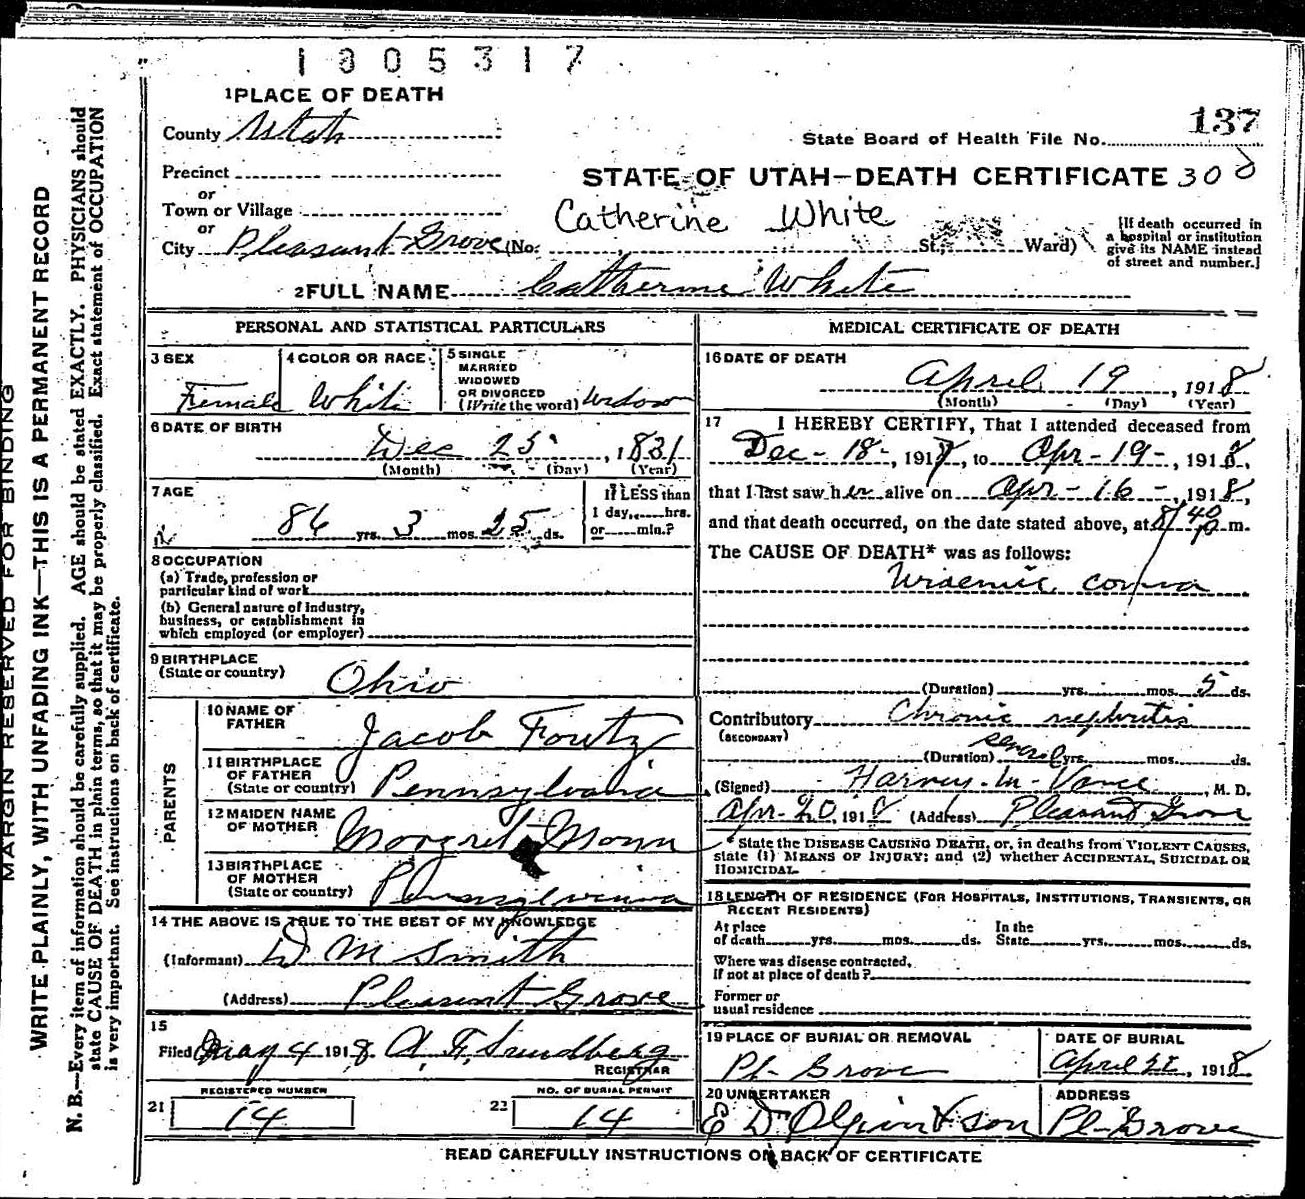 1805317
1 PLACE OF DEATH
County Utah
State Board of Health File No. 137
Precinct
or
Town or Village
or
City Pleasant Grove (No. St., Ward)
STATE OF UTAH—DEATH CERTIFICATE 300
Catherine White
[If death occurred in a hospital or institution give its NAME instead of street and number.]
2 FULL NAME Catherine White
PERSONAL AND STATISTICAL PARTICULARS
3 SEX Female
4 COLOR OR RACE White
5 SINGLE MARRIED WIDOWED OR DIVORCED (Write the word) Widow
6 DATE OF BIRTH
Dec 25, 1831
(Month) (Day) (Year)
7 AGE
86 yrs. 3 mos. 25 ds.
If LESS than 1 day, hrs. or min.?
8 OCCUPATION
(a) Trade, profession or particular kind of work
(b) General nature of industry, business, or establishment in which employed (or employer)
9 BIRTHPLACE (State or country) Ohio
PARENTS
10 NAME OF FATHER Jacob Foutz
11 BIRTHPLACE OF FATHER (State or country) Pennsylvania
12 MAIDEN NAME OF MOTHER Margret Mann
13 BIRTHPLACE OF MOTHER (State or country) Pennsylvania
14 THE ABOVE IS TRUE TO THE BEST OF MY KNOWLEDGE
(Informant) D M Smith
(Address) Pleasant Grove
15 Filed May 4 1918. A. F. Sundberg
REGISTRAR
REGISTERED NUMBER
21 14
NO. OF BURIAL PERMIT
22 14
MEDICAL CERTIFICATE OF DEATH
16 DATE OF DEATH
April 19, 1918
(Month) (Day) (Year)
17 I HEREBY CERTIFY, That I attended deceased from
Dec-18-, 1917, to Apr-19-, 1918,
that I last saw her alive on Apr-16-, 1918,
and that death occurred, on the date stated above, at 8/40 p m.
The CAUSE OF DEATH* was as follows:
Uraemic coma
(Duration) yrs. mos. 5 ds.
Contributory Chronic nephritis
(SECONDARY)
(Duration) several yrs. mos. ds.
(Signed) Harvey M. Vance, M. D.
Apr-20, 1918 (Address) Pleasant Grove
* State the DISEASE CAUSING DEATH, or, in deaths from VIOLENT CAUSES,
state (1) MEANS OF INJURY; and (2) whether ACCIDENTAL, SUICIDAL OR
HOMICIDAL.
18 LENGTH OF RESIDENCE (FOR HOSPITALS, INSTITUTIONS, TRANSIENTS, OR
RECENT RESIDENTS)
At place of death yrs. mos. ds. In the State yrs. mos. ds.
Where was disease contracted,
If not at place of death?
Former or
usual residence
19 PLACE OF BURIAL OR REMOVAL
Pl- Grove
DATE OF BURIAL
April 22, 1918
20 UNDERTAKER
E D Olpin & son
ADDRESS
Pl-Grove
READ CAREFULLY INSTRUCTIONS ON BACK OF CERTIFICATE
MARGIN RESERVED FOR BINDING
WRITE PLAINLY, WITH UNFADING INK—THIS IS A PERMANENT RECORD
N. B.—Every item of information should be carefully supplied. AGE should be stated EXACTLY. PHYSICIANS should
state CAUSE OF DEATH in plain terms, so that it may be properly classified. Exact statement of OCCUPATION
is very important. See instructions on back of certificate.